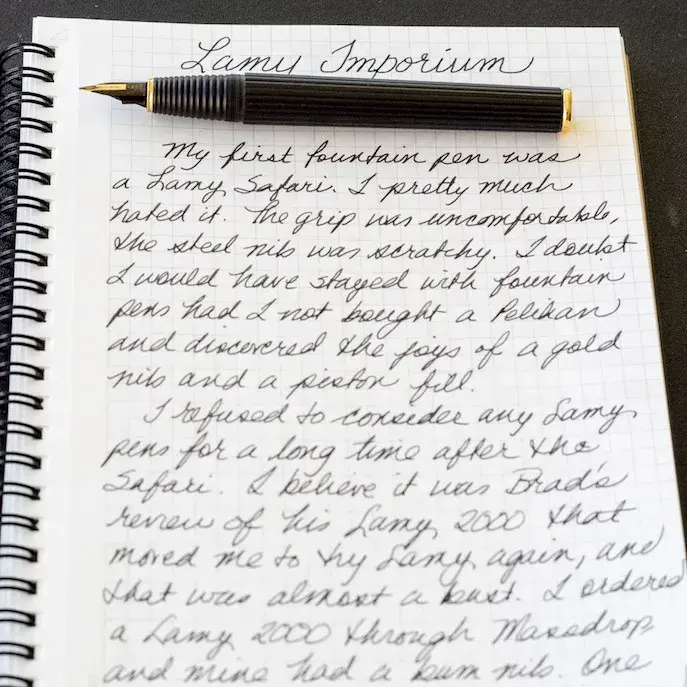 Lamy Imporium
My first fountain pen was
a Lamy Safari. I pretty much
hated it. The grip was uncomfortable,
the steel nib was scratchy. I doubt
I would have stayed with fountain
pens had I not bought a Pelikan
and discovered the joys of a gold
nib and a piston fill.
I refused to consider any Lamy
pens for a long time after the
Safari. I believe it was Brad's
review of his Lamy 2000 that
moved me to try Lamy again, and
that was almost a bust. I ordered
a Lamy 2000 through Massdrop
and mine had a bum nib. One